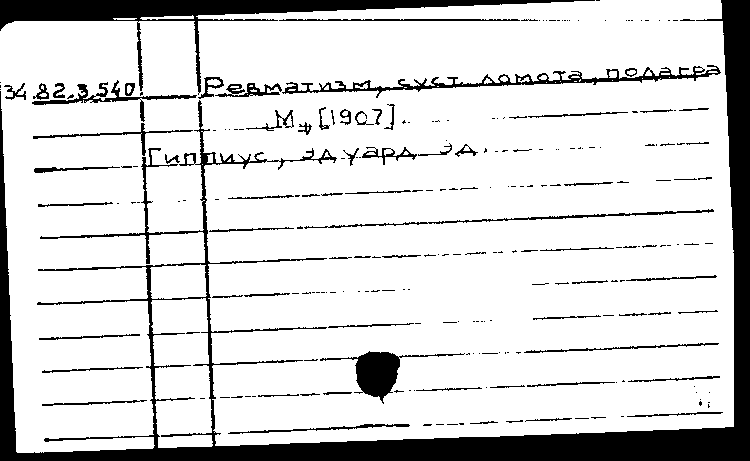 34.82.3.540 Ревматизм, суст. ломота, подагра
М., [1907].
Гиппиус, Эдуард Эд.